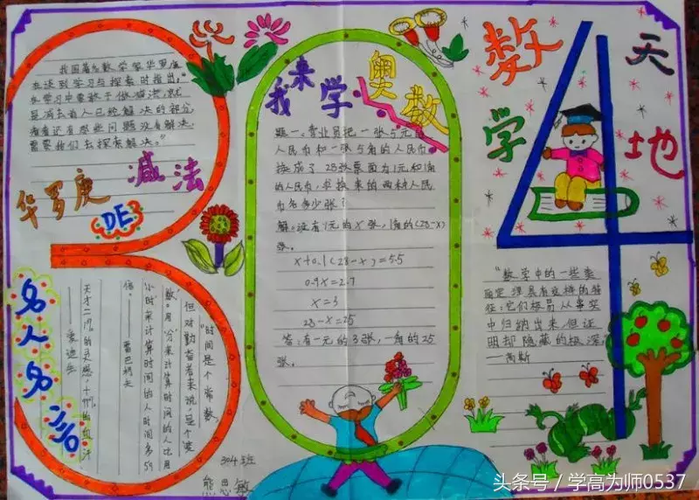 我国著名数学家华罗庚
在谈到学习与探索时指出:"
在学习中要敢于做减法,就
是减去前人已经解决的部分,
看看还有那些问题没有解决,
需要我们去探索解决。"
华罗庚
DE
减法
我来学奥数
题一、营业员把一张5元的
人民币和一张5角的人民币
换成了28张票面为1元和1角
的人民币,求换来的两种人民
币各多少张?
解:设有1元的x张,1角的(28-x)
张。
x+0.1(28-x)=5.5
0.9x=2.7
x=3
28-x=25
答:有一元的3张,一角的25
张。
数学天地
"数学中的一些美
丽定理具有这样的特
性:它们极易从事实
中归纳出来,但证
明却隐藏的极深。"
—高斯
名人名言
"时间是个常数,
但对勤奋者来说,是个'变
数'。用'分'来计算时间的人比用
'小时'来计算时间的人时间多59
倍。"
——雷巴柯夫
天才=1%的灵感+99%的血汗
——爱迪生
304班
熊思敏
头条号 / 学高为师0537